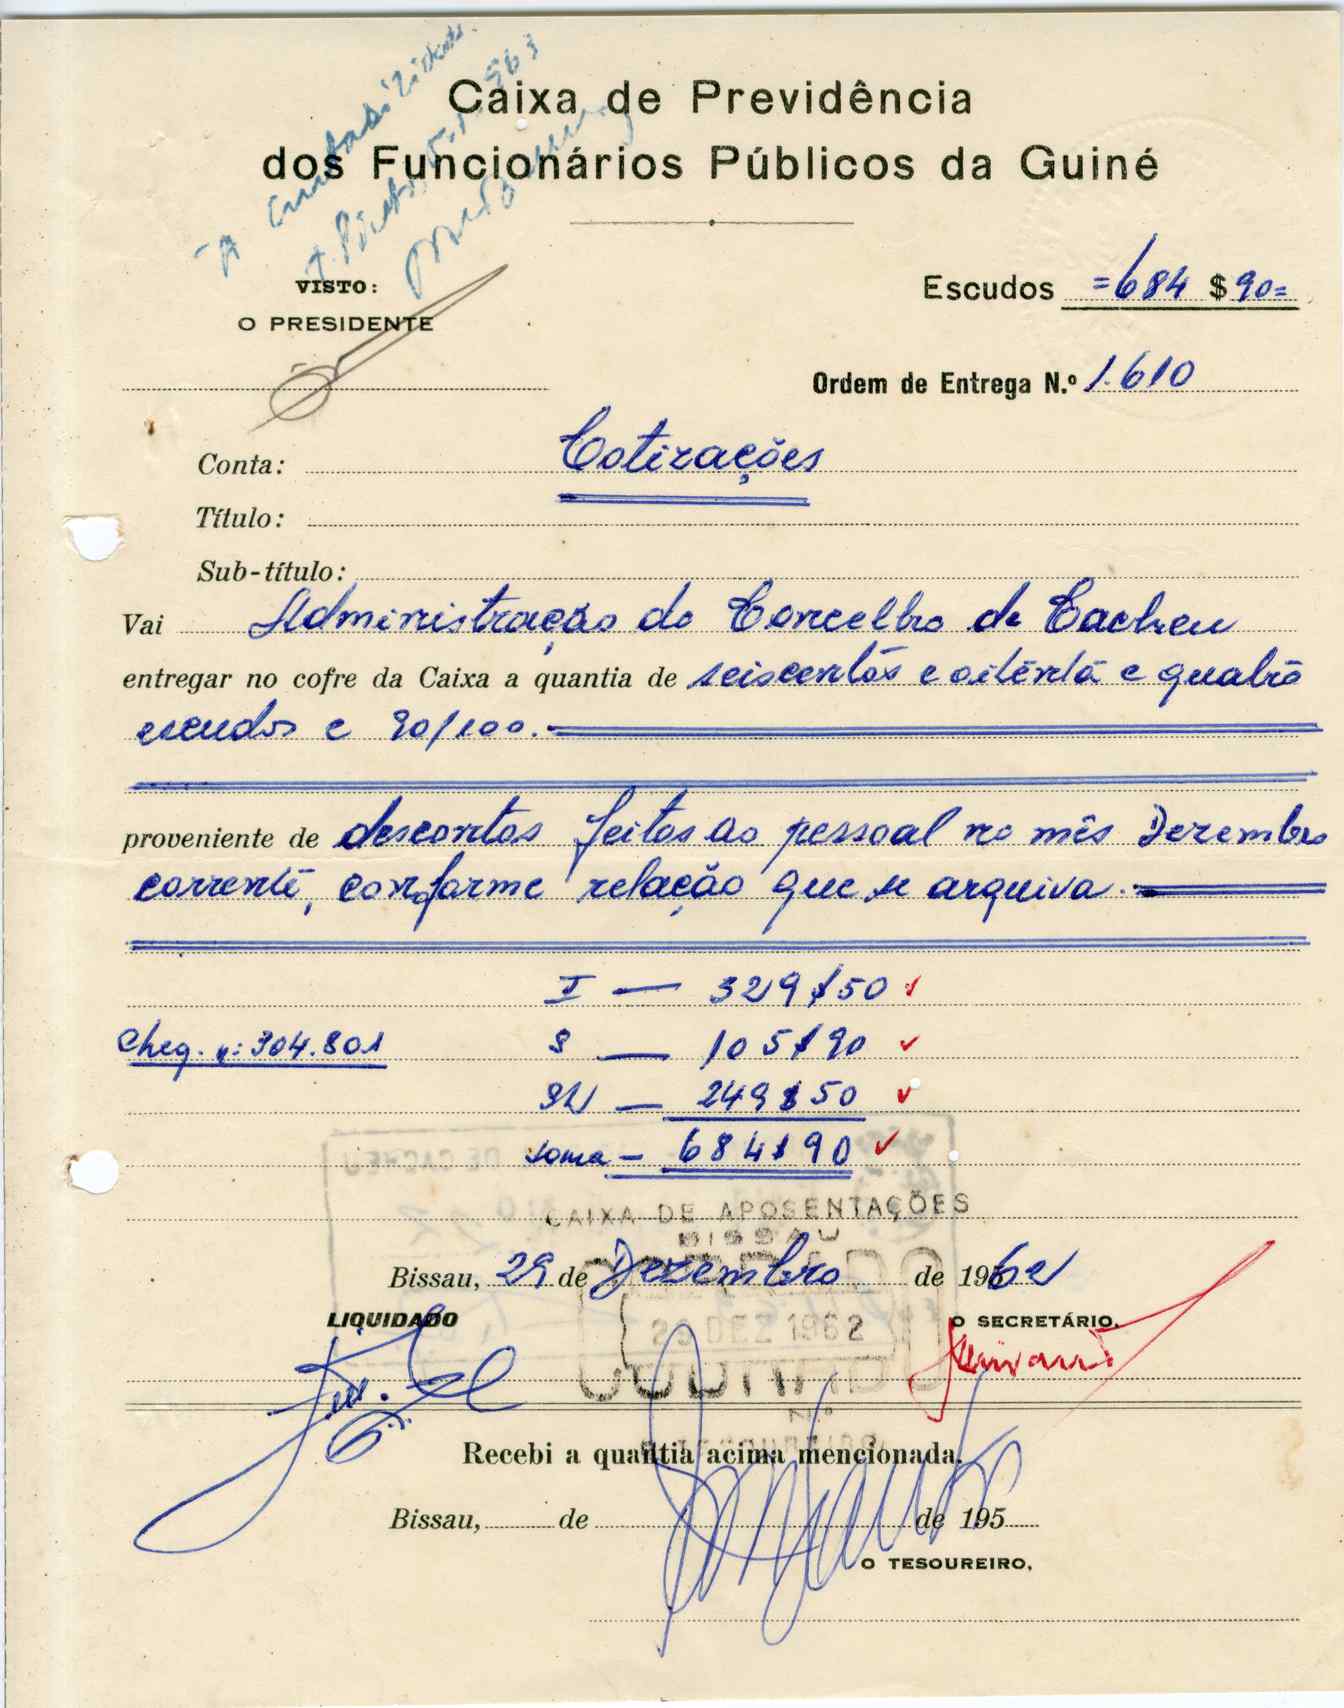 Caixa de Previdência
dos Funcionários Públicos da Guiné
VISTO:
O PRESIDENTE
Escudos =684 $ 90=
Ordem de Entrega N.º 1.610
Conta: Cotizações
Título:
Sub-título:
Vai Administração do Concelho de Cacheu
entregar no cofre da Caixa a quantia de seiscentos e oitenta e quatro
escudos e 90/100.
proveniente de descontos feitos ao pessoal no mês Dezembro
corrente, conforme relação que se arquiva.
I — 329$50
Cheq. nº: 304.801
S — 105$90
SN — 249$50
soma — 684$90
CAIXA DE APOSENTAÇÕES
BISSAU
Bissau, 29 de Dezembro de 1962
29 DEZ 1962
LIQUIDADO
O SECRETÁRIO,
Recebi a quantia acima mencionada.
Bissau, de de 195
O TESOUREIRO,